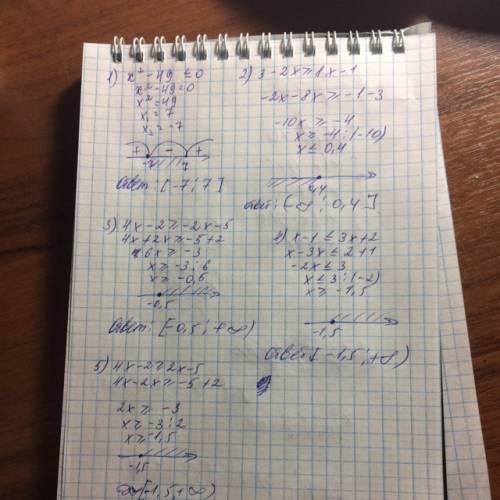 1) x² - 49 ≤ 0
x² - 49 = 0
x² = 49
x₁ = 7
x₂ = -7
+ - +
-7 7
Ответ: [-7; 7]
2) 3 - 2x ≥ 8x - 1
-2x - 8x ≥ -1 - 3
-10x ≥ -4
x ≥ -4 : (-10)
x ≤ 0,4
0,4
ответ: (∞; 0,4]
3) 4x - 2 ≥ -2x - 5
4x + 2x ≥ -5 + 2
6x ≥ -3
x ≥ -3 : 6
x ≥ -0,5
-0,5
Ответ: [-0,5; +∞)
4) x - 1 ≤ 3x + 2
x - 3x ≤ 2 + 1
-2x ≤ 3
x ≤ 3 : (-2)
x ≥ -1,5
-1,5
Ответ: [-1,5; +∞)
5) 4x - 2 ≥ 2x - 5
4x - 2x ≥ -5 + 2
2x ≥ -3
x ≥ -3 : 2
x ≥ 1,5
-1,5
[-1,5; +∞)